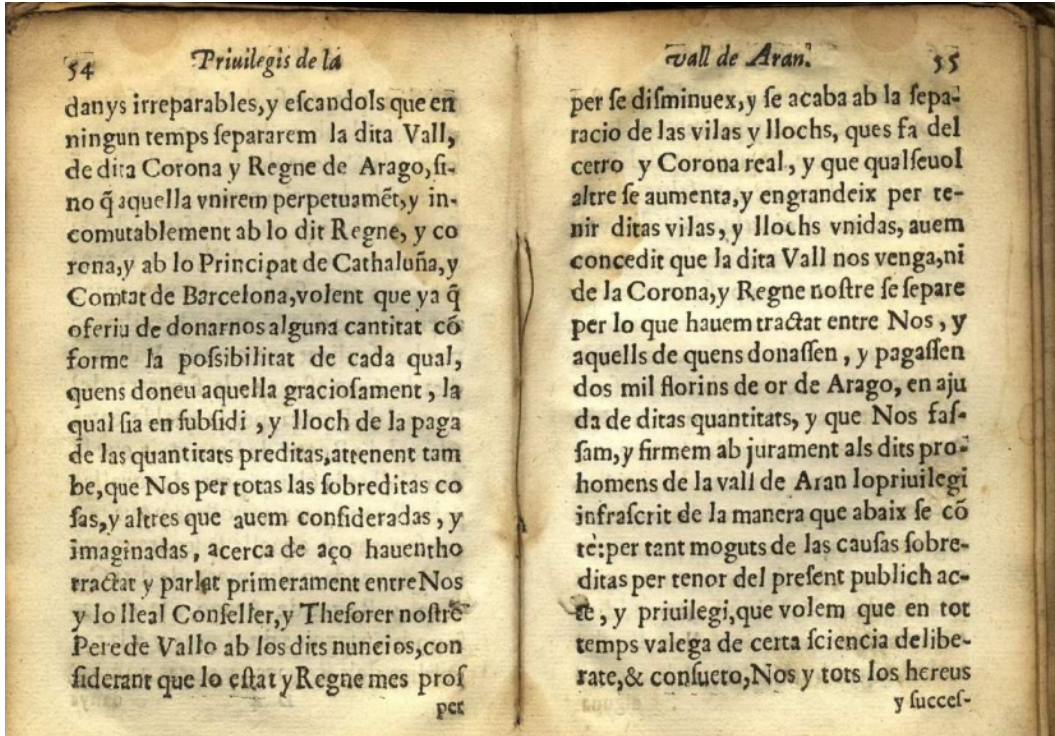 54 Priuilegis de la
danys irreparables, y eſcandols que en
ningun temps ſepararem la dita Vall,
de dita Corona y Regne de Arago, ſi-
no q̃ aquella vnirem perpetuamẽt, y in-
comutablement ab lo dit Regne, y co
rona, y ab lo Principat de Cathaluña, y
Comtat de Barcelona, volent que ya q̃
oferiu de donarnos alguna cantitat cõ
forme la poſsibilitat de cada qual,
quens doneu aquella gracioſament, la
qual ſia en ſubſidi, y lloch de la paga
de las quantitats preditas, attenent tam
be, que Nos per totas las ſobreditas co
ſas, y altres que auem conſideradas, y
imaginadas, acerca de aço hauentho
tractat y parlat primerament entre Nos
y lo lleal Conſeller, y Theſorer noſtre
Pere de Vallo ab los dits nuncios, con
ſiderant que lo eſtat y Regne mes proſ
per
vall de Aran. 55
per ſe diſminuex, y ſe acaba ab la ſepa-
racio de las vilas y llochs, ques fa del
cetro y Corona real, y que qualſeuol
altre ſe aumenta, y engrandeix per te-
nir ditas vilas, y llochs vnidas, auem
concedit que la dita Vall nos venga, ni
de la Corona, y Regne noſtre ſe ſepare
per lo que hauem tractat entre Nos, y
aquells de quens donaſſen, y pagaſſen
dos mil florins de or de Arago, en aju
da de ditas quantitats, y que Nos faſ-
ſam, y firmem ab jurament als dits pro-
homens de la vall de Aran lopriuilegi
infraſcrit de la manera que abaix ſe cõ
tè: per tant moguts de las cauſas ſobre-
ditas per tenor del preſent publich ac-
te, y priuilegi, que volem que en tot
temps valega de certa ſciencia delibe-
rate, & conſueto, Nos y tots los hereus
y ſucceſ-